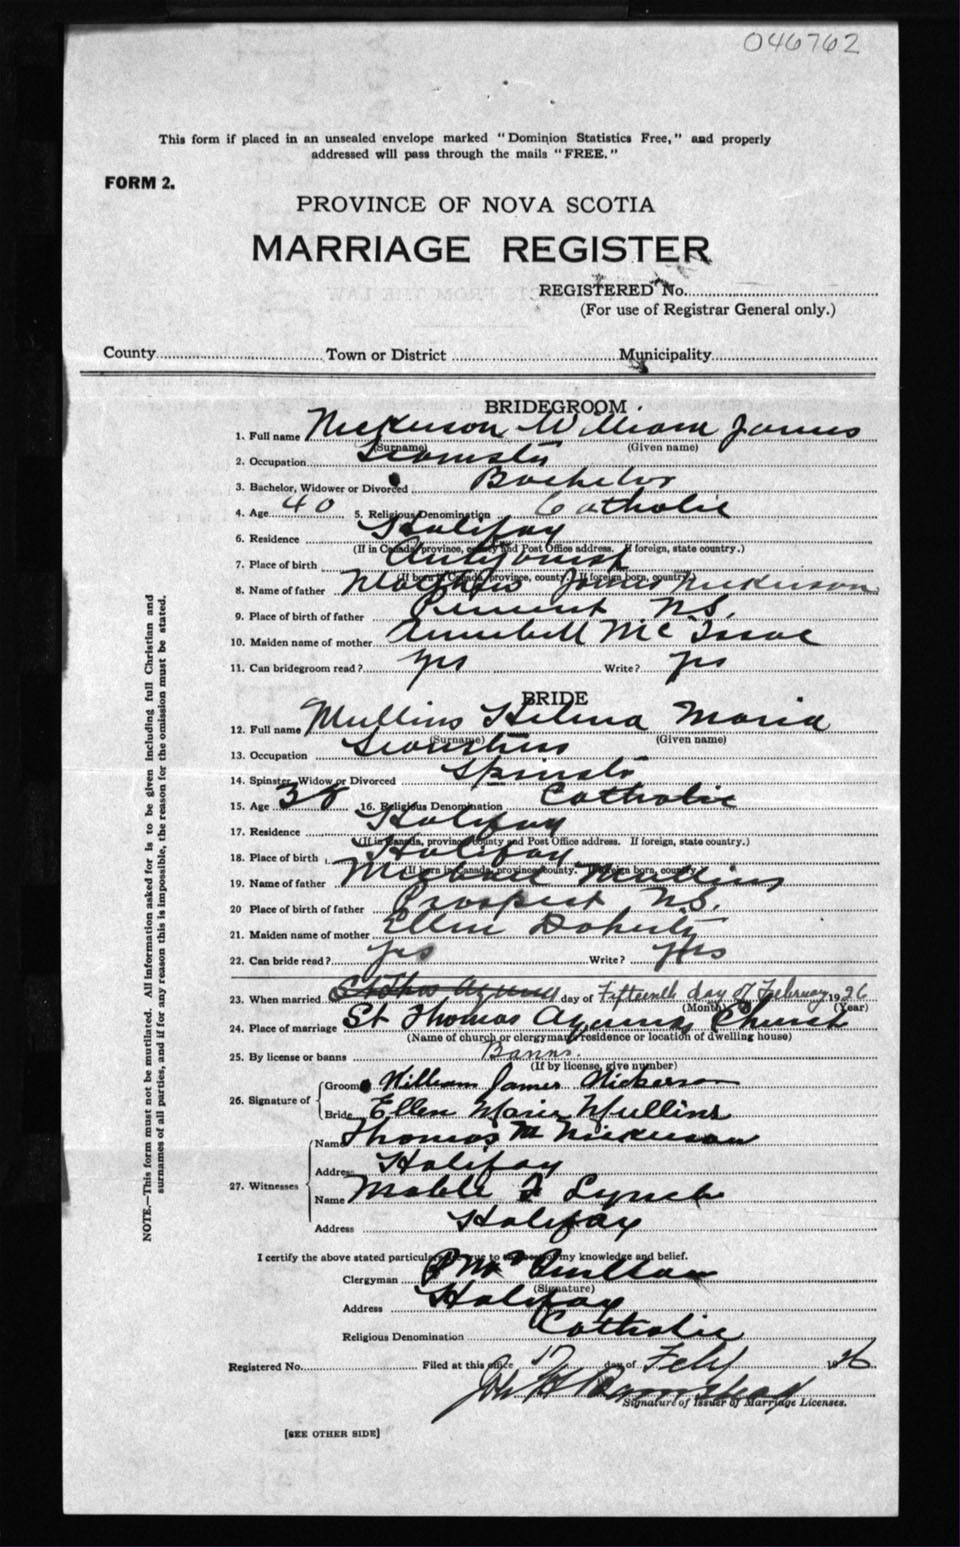 046762
This form if placed in an unsealed envelope marked "Dominion Statistics Free," and properly
addressed will pass through the mails "FREE."
FORM 2.
PROVINCE OF NOVA SCOTIA
MARRIAGE REGISTER
REGISTERED No.
(For use of Registrar General only.)
County Town or District Municipality
BRIDEGROOM
1. Full name Nickerson William James
(Surname) (Given name)
2. Occupation Teamster
3. Bachelor, Widower or Divorced Bachelor
4. Age 40 5. Religious Denomination Catholic
6. Residence Halifax
(If in Canada, province, county and Post Office address. If foreign, state country.)
7. Place of birth Antigonish
(If born in Canada, province, county. If foreign born, country)
8. Name of father James Nickerson
9. Place of birth of father N.S.
10. Maiden name of mother Annabell McIsaac
11. Can bridegroom read? Yes Write? Yes
BRIDE
12. Full name Mullins Helena Maria
(Surname) (Given name)
13. Occupation Seamstress
14. Spinster, Widow or Divorced Spinster
15. Age 38 16. Religious Denomination Catholic
17. Residence Halifax
(If in Canada, province, county and Post Office address. If foreign, state country.)
18. Place of birth Halifax
(If born in Canada, province, county. If foreign born, country)
19. Name of father Michael Mullins
20 Place of birth of father Prospect N.S.
21. Maiden name of mother Ellen Doherty
22. Can bride read? Yes Write? Yes
23. When married St Thos Aquinas day of Fifteenth day of February 1926
(Month) (Year)
24. Place of marriage St Thomas Aquinas Church
(Name of church or clergyman's residence or location of dwelling house)
25. By license or banns Banns.
(If by license, give number)
26. Signature of Groom William James Nickerson
Bride Ellen Marie Mullins
27. Witnesses Name Thomas M Nickerson
Address Halifax
Name Mable F Lynch
Address Halifax
I certify the above stated particulars are true to the best of my knowledge and belief.
Clergyman
(Signature)
Address Halifax
Religious Denomination Catholic
Registered No. Filed at this office 17 day of Feby 1926
Signature of Issuer of Marriage Licenses.
[SEE OTHER SIDE]
NOTE.—This form must not be mutilated. All information asked for is to be given including full Christian and
surnames of all parties, and if for any reason this is impossible, the reason for the omission must be stated.